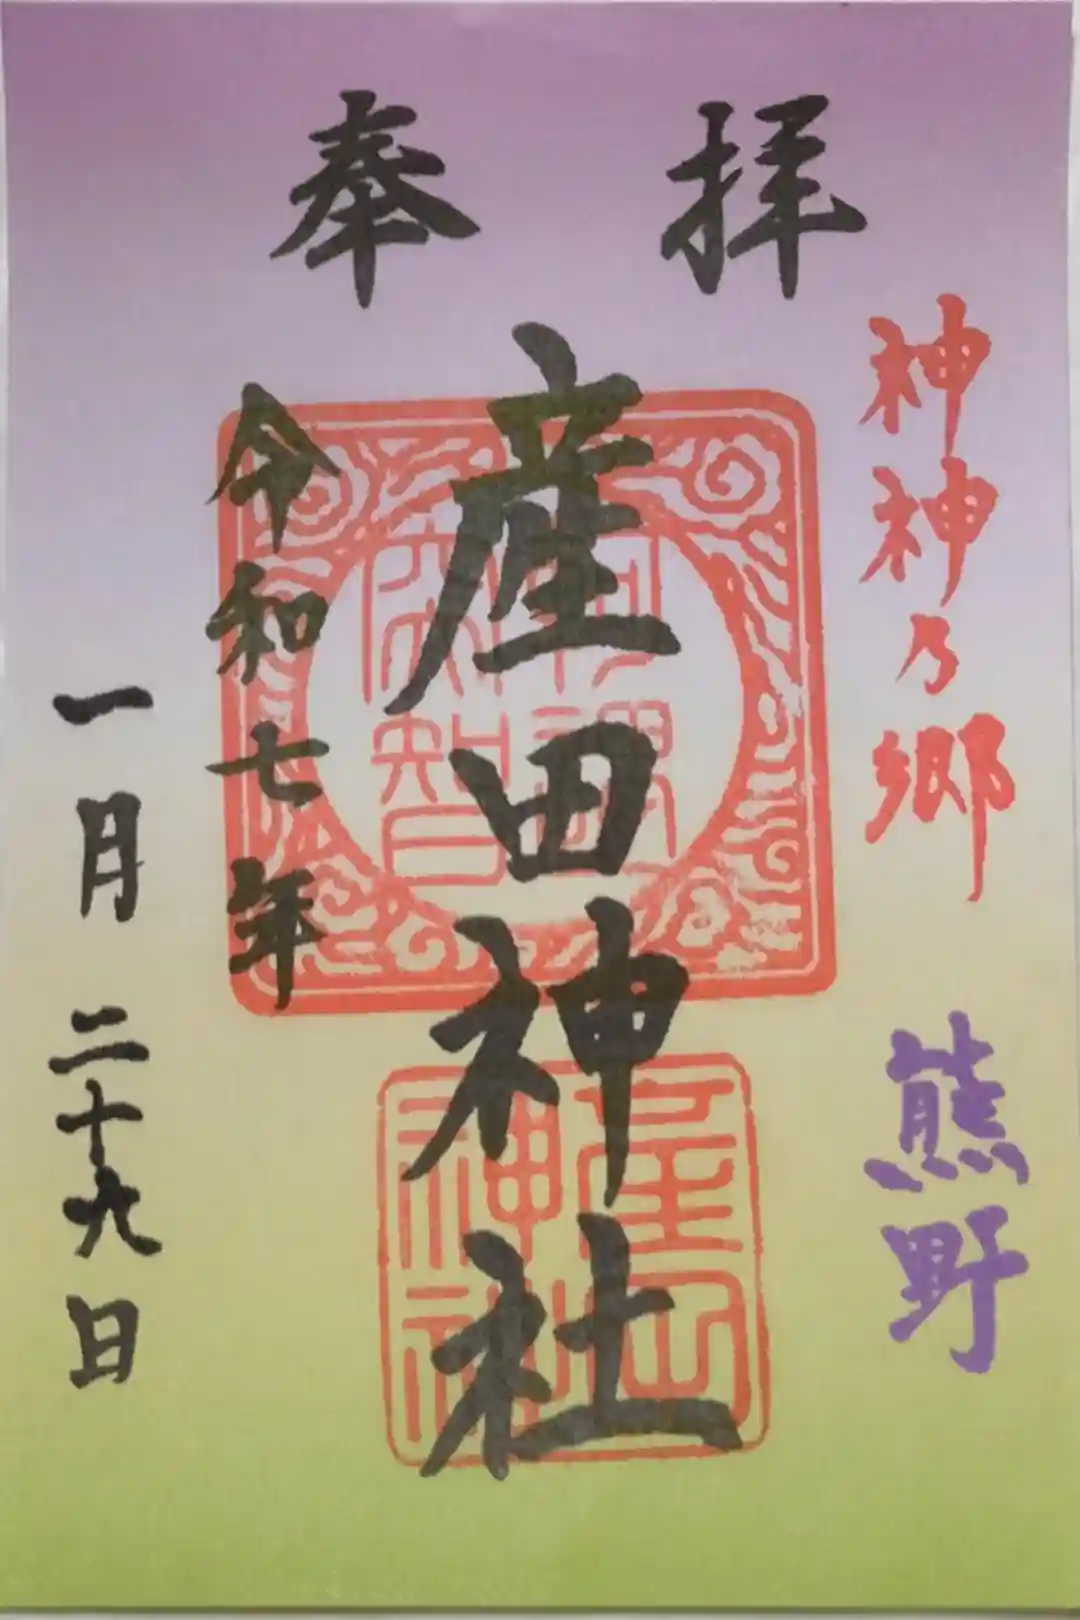 奉拝
神神乃郷 熊野
産田神社
令和七年
一月二十九日
産田神社